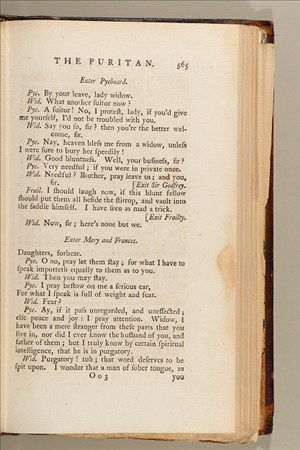 THE PURITAN. 565
Enter Pyeboard.
Pye. By your leave, lady widow.
Wid. What another ſuitor now?
Pye. A ſuitor! No, I proteſt, lady, if you'd give
me yourſelf, I'd not be troubled with you.
Wid. Say you ſo, ſir? then you're the better wel-
come, ſir.
Pye. Nay, heaven bleſs me from a widow, unleſs
I were ſure to bury her ſpeedily!
Wid. Good bluntneſs. Well, your buſineſs, ſir?
Pye. Very needful; if you were in private once.
Wid. Needful? Brother, pray leave us; and you,
ſir. [Exit Sir Godfrey.
Frail. I ſhould laugh now, if this blunt fellow
ſhould put them all beſide the ſtirrop, and vault into
the ſaddle himſelf. I have ſeen as mad a trick.
[Exit Frailty.
Wid. Now, ſir; here's none but we.
Enter Mary and Frances.
Daughters, forbear.
Pye. O no, pray let them ſtay; for what I have to
ſpeak importeth equally to them as to you.
Wid. Then you may ſtay.
Pye. I pray beſtow on me a ſerious ear,
For what I ſpeak is full of weight and fear.
Wid. Fear?
Pye. Ay, if it paſs unregarded, and uneffected;
elſe peace and joy: I pray attention. Widow, I
have been a mere ſtranger from theſe parts that you
live in, nor did I ever know the huſband of you, and
father of them; but I truly know by certain ſpiritual
intelligence, that he is in purgatory.
Wid. Purgatory! tuh; that word deſerves to be
ſpit upon. I wonder that a man of ſober tongue, as
O o 3 you